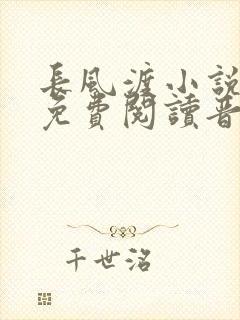 長風渡小說
免費閱讀晋
千世洺